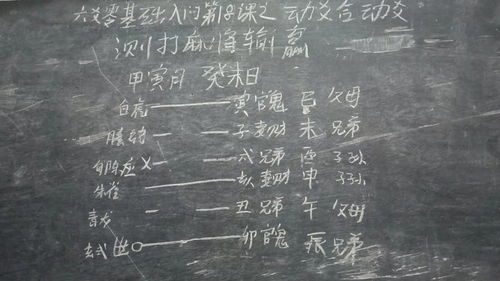 六爻零基础入门第18课之 动爻合动爻
测打麻将输赢
甲寅月 癸未日
白虎 寅官鬼 巳 父母
螣蛇 子妻财 未 兄弟
勾陈应X 戌兄弟 酉 子孙
朱雀 亥妻财 申 子孙
青龙 丑兄弟 午 父母
玄武世O 卯官鬼 辰兄弟